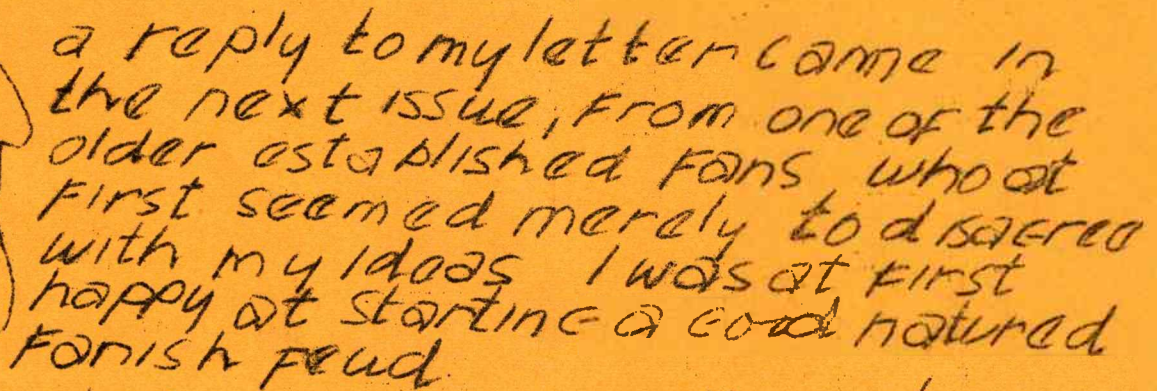 a reply to my letter came in
the next issue, from one of the
older established fans, who at
first seemed merely to disagree
with my ideas I was at first
happy at starting a good natured
fanish feud.